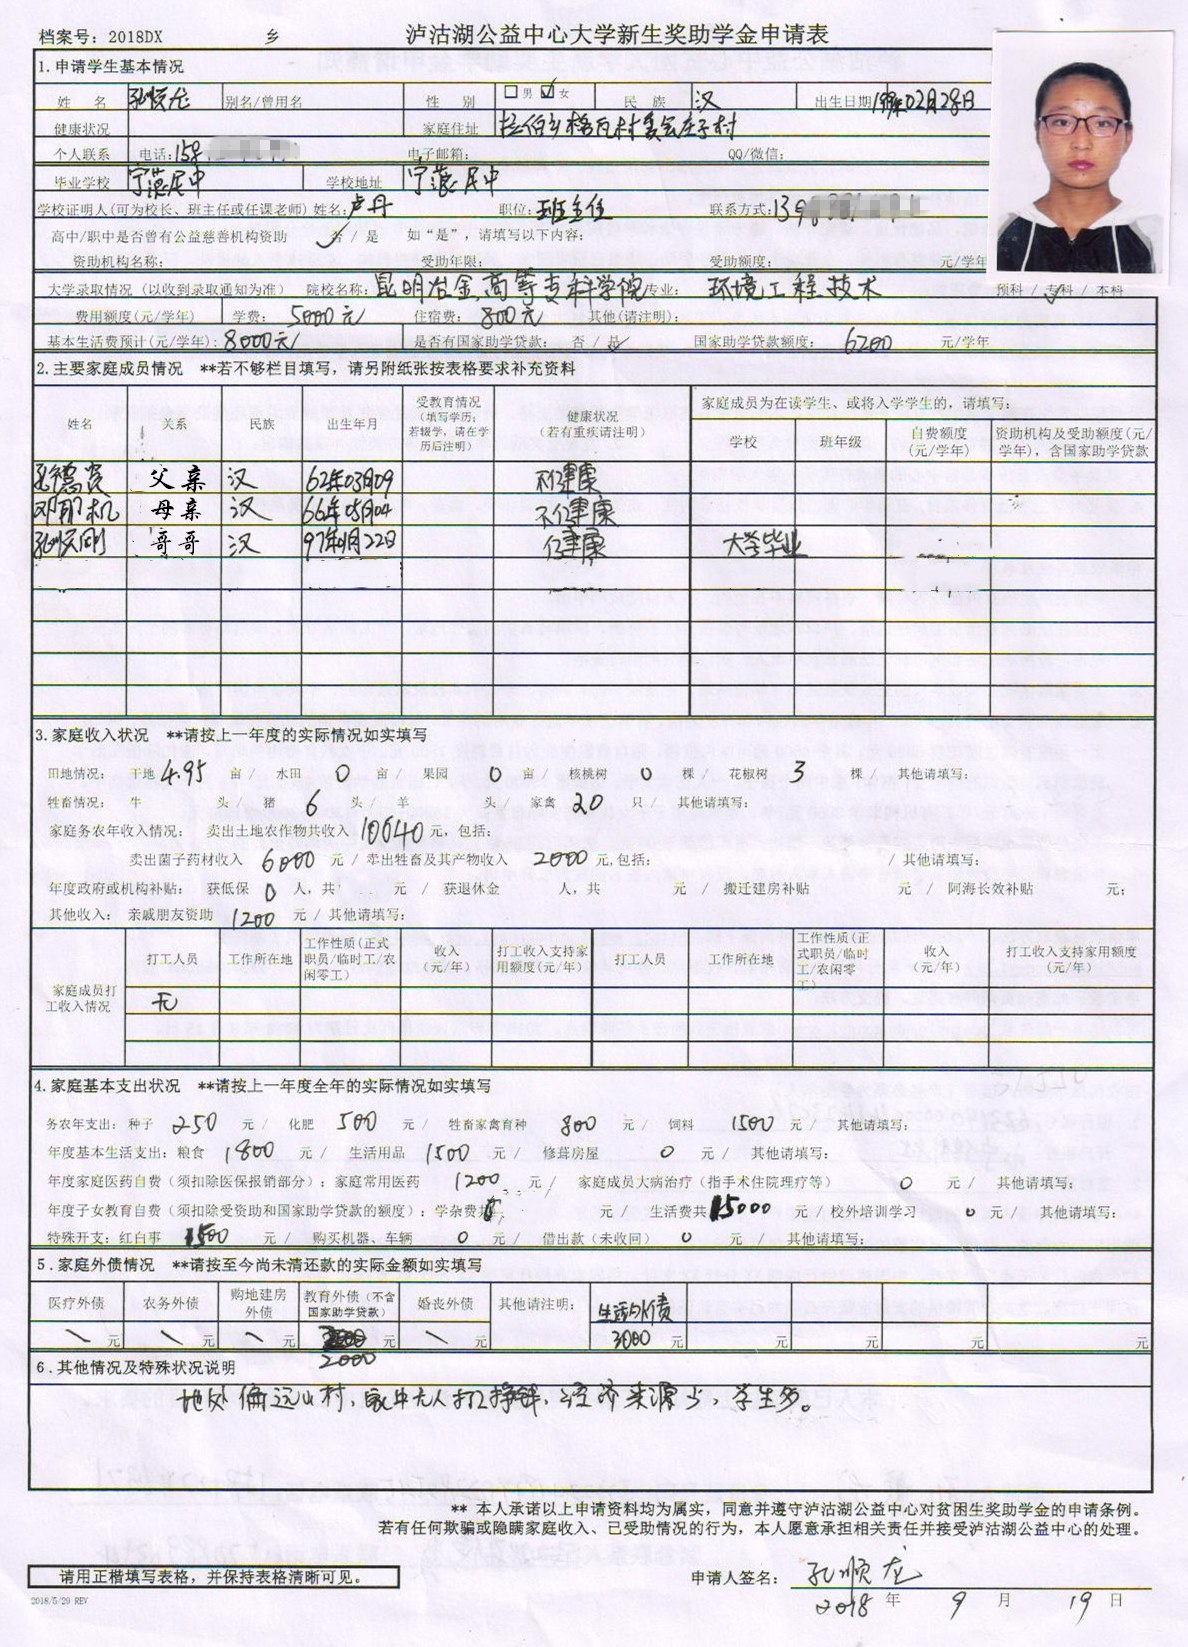 档案号：2018DX 乡 泸沽湖公益中心大学新生奖助学金申请表
1.申请学生基本情况
姓 名 孔顺龙 别名/曾用名 性 别 □男 ☑女 民 族 汉 出生日期 1999年02月28日
健康状况 家庭住址 拉伯乡格瓦村委会庄子村
个人联系 电话：159 电子邮箱： QQ/微信：
毕业学校 宁蒗民中 学校地址 宁蒗民中
学校证明人(可为校长、班主任或任课老师) 姓名：卢丹 职位：班主任 联系方式：139
高中/职中是否曾有公益慈善机构资助 否 / 是 如“是”，请填写以下内容：
资助机构名称： 受助年限： 受助额度： 元/学年
大学录取情况（以收到录取通知为准） 院校名称：昆明冶金高等专科学院 专业： 环境工程技术 预科 / 专科 / 本科
费用额度(元/学年) 学费： 5000元 住宿费： 800元 其他(请注明)：
基本生活费预计(元/学年)： 8000元 是否有国家助学贷款： 否 / 是 国家助学贷款额度： 6200 元/学年
2.主要家庭成员情况 **若不够栏目填写，请另附纸张按表格要求补充资料
姓名 关系 民族 出生年月 受教育情况（填写学历；若辍学，请在学历后注明） 健康状况（若有重疾请注明） 家庭成员为在读学生、或将入学学生的，请填写：
学校 班年级 自费额度(元/学年) 资助机构及受助额度(元/学年)，含国家助学贷款
孔德贵 父亲 汉 62年03月09 不健康
母亲 汉 66年05月04 不健康
孔顺刚 哥哥 汉 健康 大学毕业
3.家庭收入状况 **请按上一年度的实际情况如实填写
田地情况：干地 4.95 亩/ 水田 0 亩/ 果园 0 亩/ 核桃树 0 棵/ 花椒树 3 棵/ 其他请填写：
牲畜情况：牛 头/ 猪 6 头/ 羊 头/ 家禽 20 只/ 其他请填写：
家庭务农年收入情况： 卖出土地农作物共收入 10640 元，包括：
卖出菌子药材收入 6000 元 / 卖出牲畜及其产物收入 2000 元，包括： / 其他请填写：
年度政府或机构补贴： 获低保 0 人，共 元 / 获退休金 人，共 元 / 搬迁建房补贴 元 / 阿海长效补贴 元；
其他收入：亲戚朋友资助 1200 元 / 其他请填写：
家庭成员打工收入情况 打工人员 工作所在地 工作性质(正式职员/临时工/农闲零工) 收入(元/年) 打工收入支持家用额度(元/年) 打工人员 工作所在地 工作性质(正式职员/临时工/农闲零工) 收入(元/年) 打工收入支持家用额度(元/年)
无
4.家庭基本支出状况 **请按上一年度全年的实际情况如实填写
务农年支出：种子 250 元 / 化肥 500 元 / 牲畜家禽育种 800 元 / 饲料 1500 元 / 其他请填写：
年度基本生活支出：粮食 1800 元 / 生活用品 1500 元 / 修葺房屋 0 元 / 其他请填写：
年度家庭医药自费（须扣除医保报销部分）：家庭常用医药 1200 元 / 家庭成员大病治疗（指手术住院理疗等） 0 元 / 其他请填写：
年度子女教育自费（须扣除受资助和国家助学贷款的额度）：学杂费共 元 / 生活费共 15000 元 / 校外培训学习 0 元 / 其他请填写：
特殊开支：红白事 1500 元 / 购买机器、车辆 0 元 / 借出款（未收回） 0 元 / 其他请填写：
5.家庭外债情况 **请按至今尚未清还款的实际金额如实填写
医疗外债 农务外债 购地建房外债 教育外债（不含国家助学贷款） 婚丧外债 其他请注明： 生活外债
\ 元 \ 元 \ 元 2000 \ 元 3000 元 元 元 元 元
6.其他情况及特殊状况说明
地处偏远山村，家中无人打工挣钱，经济来源少，学生多。
** 本人承诺以上申请资料均为属实，同意并遵守泸沽湖公益中心对贫困生奖助学金的申请条例。
若有任何欺骗或隐瞒家庭收入、已受助情况的行为，本人愿意承担相关责任并接受泸沽湖公益中心的处理。
请用正楷填写表格，并保持表格清晰可见。 申请人签名： 孔顺龙
2018/5/29 REV 2018 年 9 月 19 日